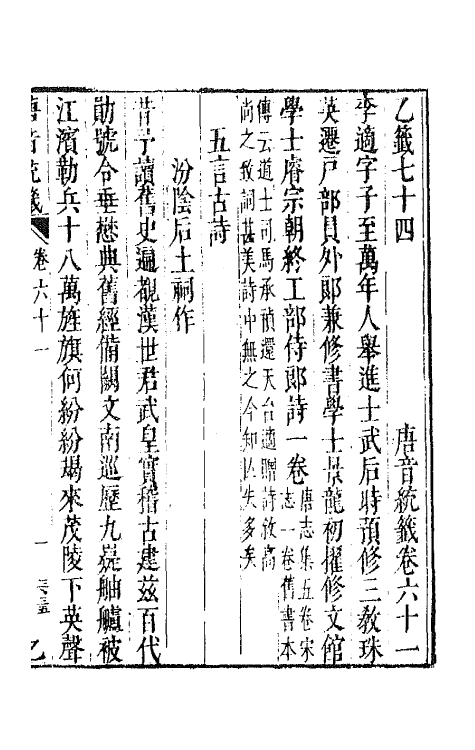 乙籤七十四　唐音統籤卷六十一
李適字子至萬年人舉進士武后時預修三教珠
英遷戸部員外郎兼修書學士景龍初擢修文館
學士睿宗朝終工部侍郎詩一卷唐志集五卷宋志一卷舊書本
傳云道士司馬承禎還天台適贈詩敘高
尚之致詞甚美詩中無之今知其失多矣
五言古詩
汾陰后土祠作
昔予讀舊史遍觀漢世君武皇實稽古建茲百代
勛號令垂懋典舊經備闕文南巡歷九嶷舳艫被
江濱勒兵十八萬旌旗何紛紛朅來茂陵下英聲
唐音統籤　卷六十一　一　乙